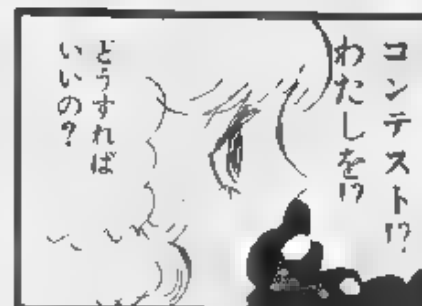 コンテスト!?
わたしを!?
どうすれば
いいの?